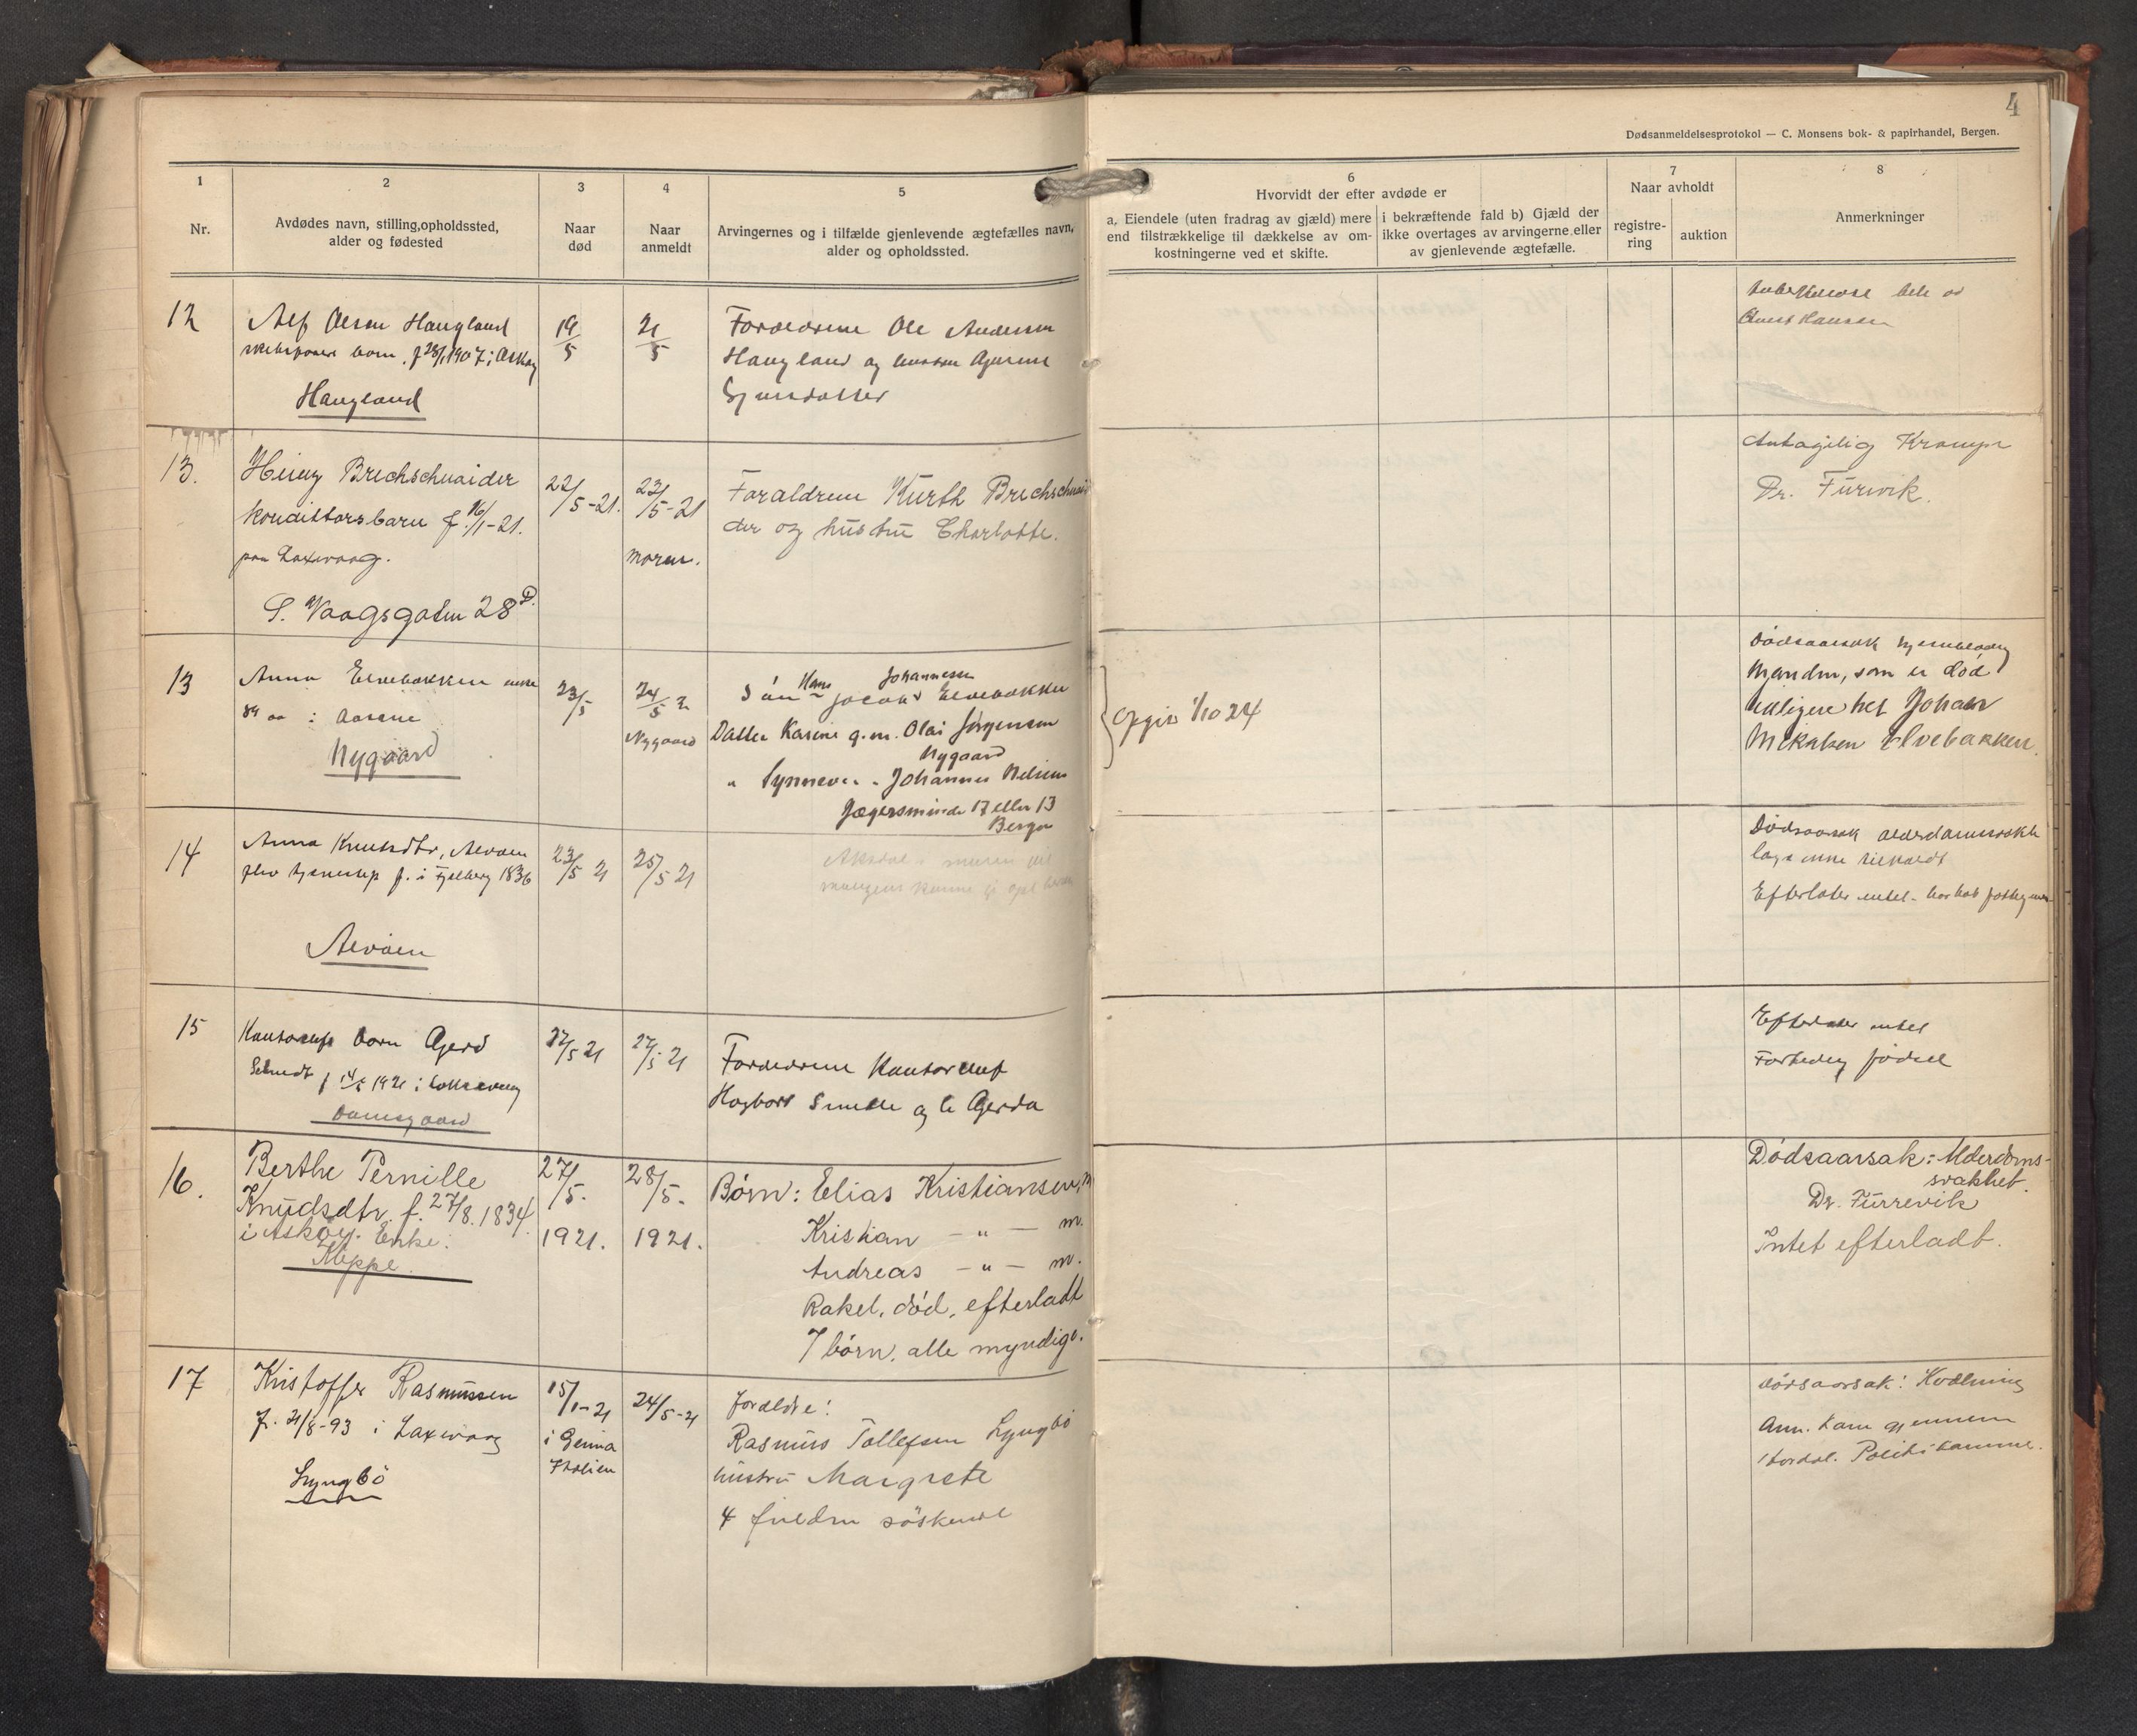 4
Dødsanmeldelsesprotokol — C. Monsens bok- & papirhandel, Bergen.
1
Nr.
2
Avdødes navn, stilling, opholdssted,
alder og fødested
3
Naar
død
4
Naar
anmeldt
5
Arvingernes og i tilfælde gjenlevende ægtefælles navn,
alder og opholdssted.
6
Hvorvidt der efter avdøde er
a. Eiendele (uten fradrag av gjæld) mere
end tilstrækkelige til dækkelse av om-
kostningerne ved et skifte.
i bekræftende fald b) Gjæld der
ikke overtages av arvingerne eller
av gjenlevende ægtefælle.
7
Naar avholdt
registre-
ring
auktion
8
Anmerkninger
12
Alf Olsen Haugland
barn f 28/1 1907 i Askøy
Haugland
19/5
21/5
Forældrene Ole Andersen
Haugland og hustru
Hansen
13.
Heinz Brechschnaider
Kondittorsbarn f. 16/1-21.
paa Laxevaag.
S. Vaagsgaten 28 D.
22/5-21.
23/5-21
moren.
Forældrene Kurth Brechschnai
der og hustru Charlotte.
Antagelig Krampe
Dr. Furevik.
13
Anna Elvebakken enke
89 aa i Aasane
Nygaard
23/5
24/5 21
Nygaard
Sön Hans Johannessen
Jacob Elvebakken
Datter Karine g. m. Olai Jørgensen
Nygaard
" Synneve " Johannes Nelsens
Jægersminde 17 eller 13
Bergen
Opgis 1/10 24
Dødsaarsak hjerneblødn
Manden, som er død
tidligere het Johan
Mikalsen Elvebakken.
14
Anna Knutsdtr, Alvøen
f. i Fjelberg 1836
Alvøen
23/5 21
25/5 21
Dødsaarsak alderdomssvakh
læge ikke tilkaldt
Efterlater intet - har hat
15
Kontorchefs barn Gerd
f 14/5 1921 i Laksevaag
Damsgaard
27/5 21
27/5 21
Forældrene Kontorchef
Hagbart og h Gerda
Efterlater intet
Fortidlig födsel
16.
Berthe Pernille
Knudsdtr f. 27/8. 1834.
i Askøy. Enke.
Kleppe.
27/5.
1921.
28/5.
1921.
Børn: Elias Kristiansen, m
Kristian — " — m.
Andreas — " — m.
Rakel, død, efterladt
7 børn, alle myndige.
Dødsaarsak: Alderdoms-
svakhet.
Dr. Furrevik
Intet efterladt.
17
Kristoffer Rasmussen
f. 21/8-93 i Laxevaag
Lyngbö
15/1-21
i Genua
Italien
24/5-21
forældre:
Rasmus Tollefsen Lyngbö
hustru Margrete
4 söskende
dødsaarsak: Kvælning
Anm. kom gjennem
Politikammer.